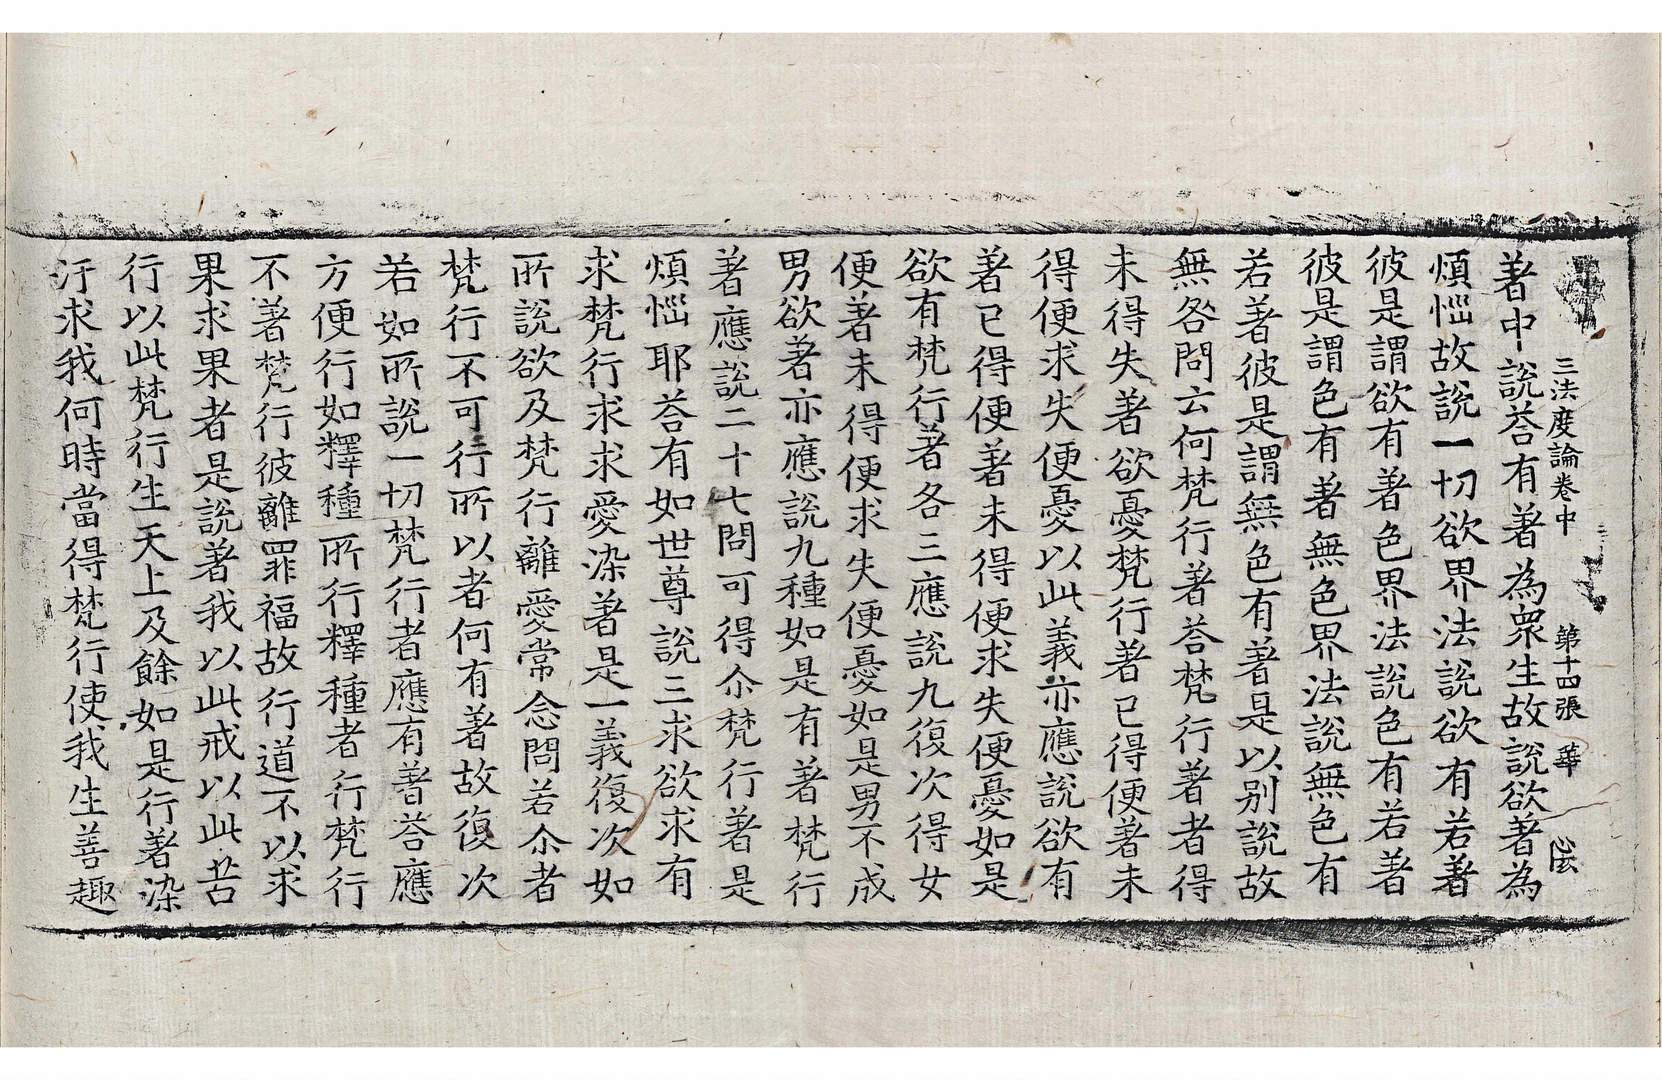 三法度論卷中 第十四張 華
著中說荅有著為眾生故說欲著為
煩惱故說一切欲界法說欲有若著
彼是謂欲有著色界法說色有若著
彼是謂色有著無色界法說無色有
若著彼是謂無色有著是以別說故
無咎問云何梵行著荅梵行著者得
未得失著欲憂梵行著已得便著未
得便求失便憂以此義亦應說欲有
著已得便著未得便求失便憂如是
欲有梵行著各三應說九復次得女
便著未得便求失便憂如是男不成
男欲著亦應說九種如是有著梵行
著應說二十七問可得尒梵行著是
煩惱耶荅有如世尊說三求欲求有
求梵行求求愛染著是一義復次如
所說欲及梵行離愛常念問若尒者
梵行不可行所以者何有著故復次
若如所說一切梵行者應有著荅應
方便行如釋種所行釋種者行梵行
不著梵行彼離罪福故行道不以求
果求果者是說著我以此戒以此苦
行以此梵行生天上及餘如是行著染
汙求我何時當得梵行使我生善趣